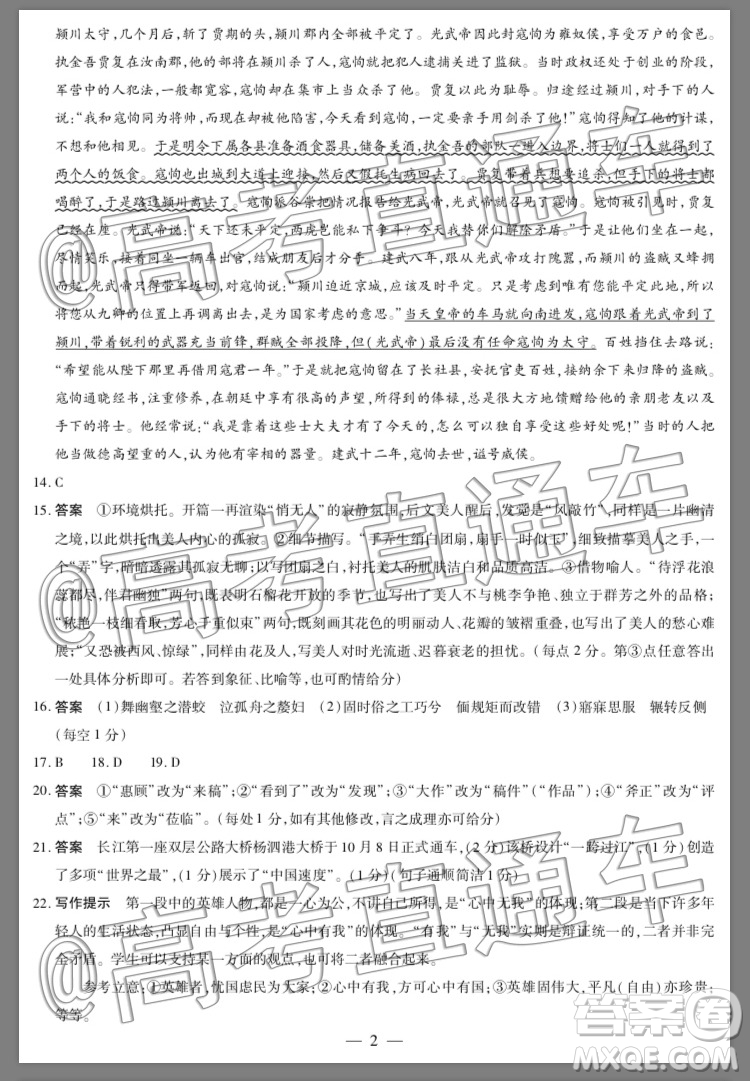 颍川太守，几个月后，斩了贾期的头，颍川郡内被平定了。光武帝因此封寇恂为雍奴侯，享受万户的食邑。
执金吾贾复在汝南郡，他的部将在颍川杀了人，寇恂就把犯人逮捕关进了监狱。当时政权还处于创业的阶段，
军营中的人犯法，一般都宽容，寇恂却在集市上当众杀了他。贾复以此为耻辱。归途经过颍川，对手下的人
说：“我和寇恂同为将帅，而现在却被他陷害，今天见了寇恂，一定要亲手用剑杀了他！”寇恂知道了他的计谋，
不想和他相见。于是明令下属各县准备酒食器具，储备美酒，执金吾的部队一进入边界，将士们每人就得到了
两个人的饭食。寇恂也出城到大道上迎接，然后又假托生病回去了。贾复带着兵想要追他，但手下的将士都
喝醉了，于是路过颍川离去了。寇恂派谷崇把情况报告给光武帝，光武帝就召见了寇恂，寇恂到的时候，贾复
已经在座。光武帝说：“天下还未平定，两虎怎能私下争斗？今天我替你们解除矛盾。”于是让他们坐在一起，
尽情笑乐，接着一同坐一辆车出宫，结成朋友后才分手。建武八年，光武帝攻打隗嚣，而颍川盗贼又蜂
起，光武帝只得带军返回，对寇恂说：“颍川迫近京城，应该及时平定。只是考虑到唯有您能平定它，所以
将您从九卿的位置上再调离出去，是为国家考虑的意思。”当天皇帝的车马就向南进发，寇恂跟着光武帝到了
颍川，带着锐利的武器充当前锋，群贼全部投降，但（光武帝）最后没有任命寇恂为太守。百姓挡住去路说：
“希望能从陛下那里再借寇君一年。”于是就让寇恂留在了长社县，安抚官吏百姓，接纳余下来归降的盗贼。
寇恂通晓经书，注重修养，在朝廷中享有很高的声望，所得到的俸禄，总是很大方地馈赠给他的亲朋老友以及
手下的将士。他经常说：“我是靠着这些士大夫才有了今天的，怎么能自己独自享受好处呢！”当时的人把
他当做德高望重的人，认为他有宰相的器量。建武十二年，寇恂去世，谥号威侯。
14. C
15. 答案　①环境烘托。开篇一再渲染“悄无人”的寂静氛围，后文美人醒后，发觉是“风敲竹”，同样是一片幽清
之境，以此烘托出美人内心的孤寂。②细节描写。“手弄生绡白团扇，扇手一时似玉”，细致描摹美人之手，一
个“弄”字，暗暗透露其孤寂无聊；以团扇之白，衬托美人的品洁和品质高洁。③借物喻人。“待浮花浪
蕊都尽，伴君幽独”两句，既表明石榴花开放的季节，也写出了美人不与桃李争艳、独立于群芳之外的品格；
“秾艳一枝细看取，芳心千重似束”两句，既刻画其花色的明丽动人、花瓣的皱褶重叠，也写出了美人的愁心难
展；“又恐被西风、惊绿”，同样由花及人，写出美人对时光流逝、迟暮衰老的担忧。（每点2分。第③点任意答出
一处具体分析即可。若答到象征、比喻等，也可酌情给分）
16. 答案　(1)舞幽壑之潜蛟　泣孤舟之嫠妇　(2)固时俗之工巧兮　偭规矩而改错　(3)寤寐思服　辗转反侧
（每空1分）
17. B　18. D　19. D
20. 答案　①“惠顾”改为“来稿”；②“看到了”改为“发现”；③“大作”改为“稿件”（“作品”）；④“斧正”改为“评
点”；⑤“来”改为“莅临”。（每处1分，如有其他修改，言之成理亦可给分）
21. 答案　长江第一座双层公路大桥杨泗港大桥于10月8日正式通车，（2分）该桥设计“一跨过江”，（1分）创造
了多项“世界之最”，（1分）展示了“中国速度”。（1分）（句子通顺简洁1分）
22. 写作提示　第一段中的英雄人物，都是一心为公，不讲自己所得，是“心中无我”的体现；第二段是当下许多年
轻人的生活状态，凸显自由与个性，是“心中有我”的体现。“有我”与“无我”实则是辩证统一的，二者并非完
全矛盾。学生可以支持某一方面的观点，也可将二者融合起来。
参考立意：①英雄者，忧国虑民为大家；②心中有我，方可心中有国；③英雄固伟大，平凡（自由）亦珍贵；
等等。
— 2 —
@高考直通车
@高考直通车
@高考直通车
答案圈
MXQE.COM